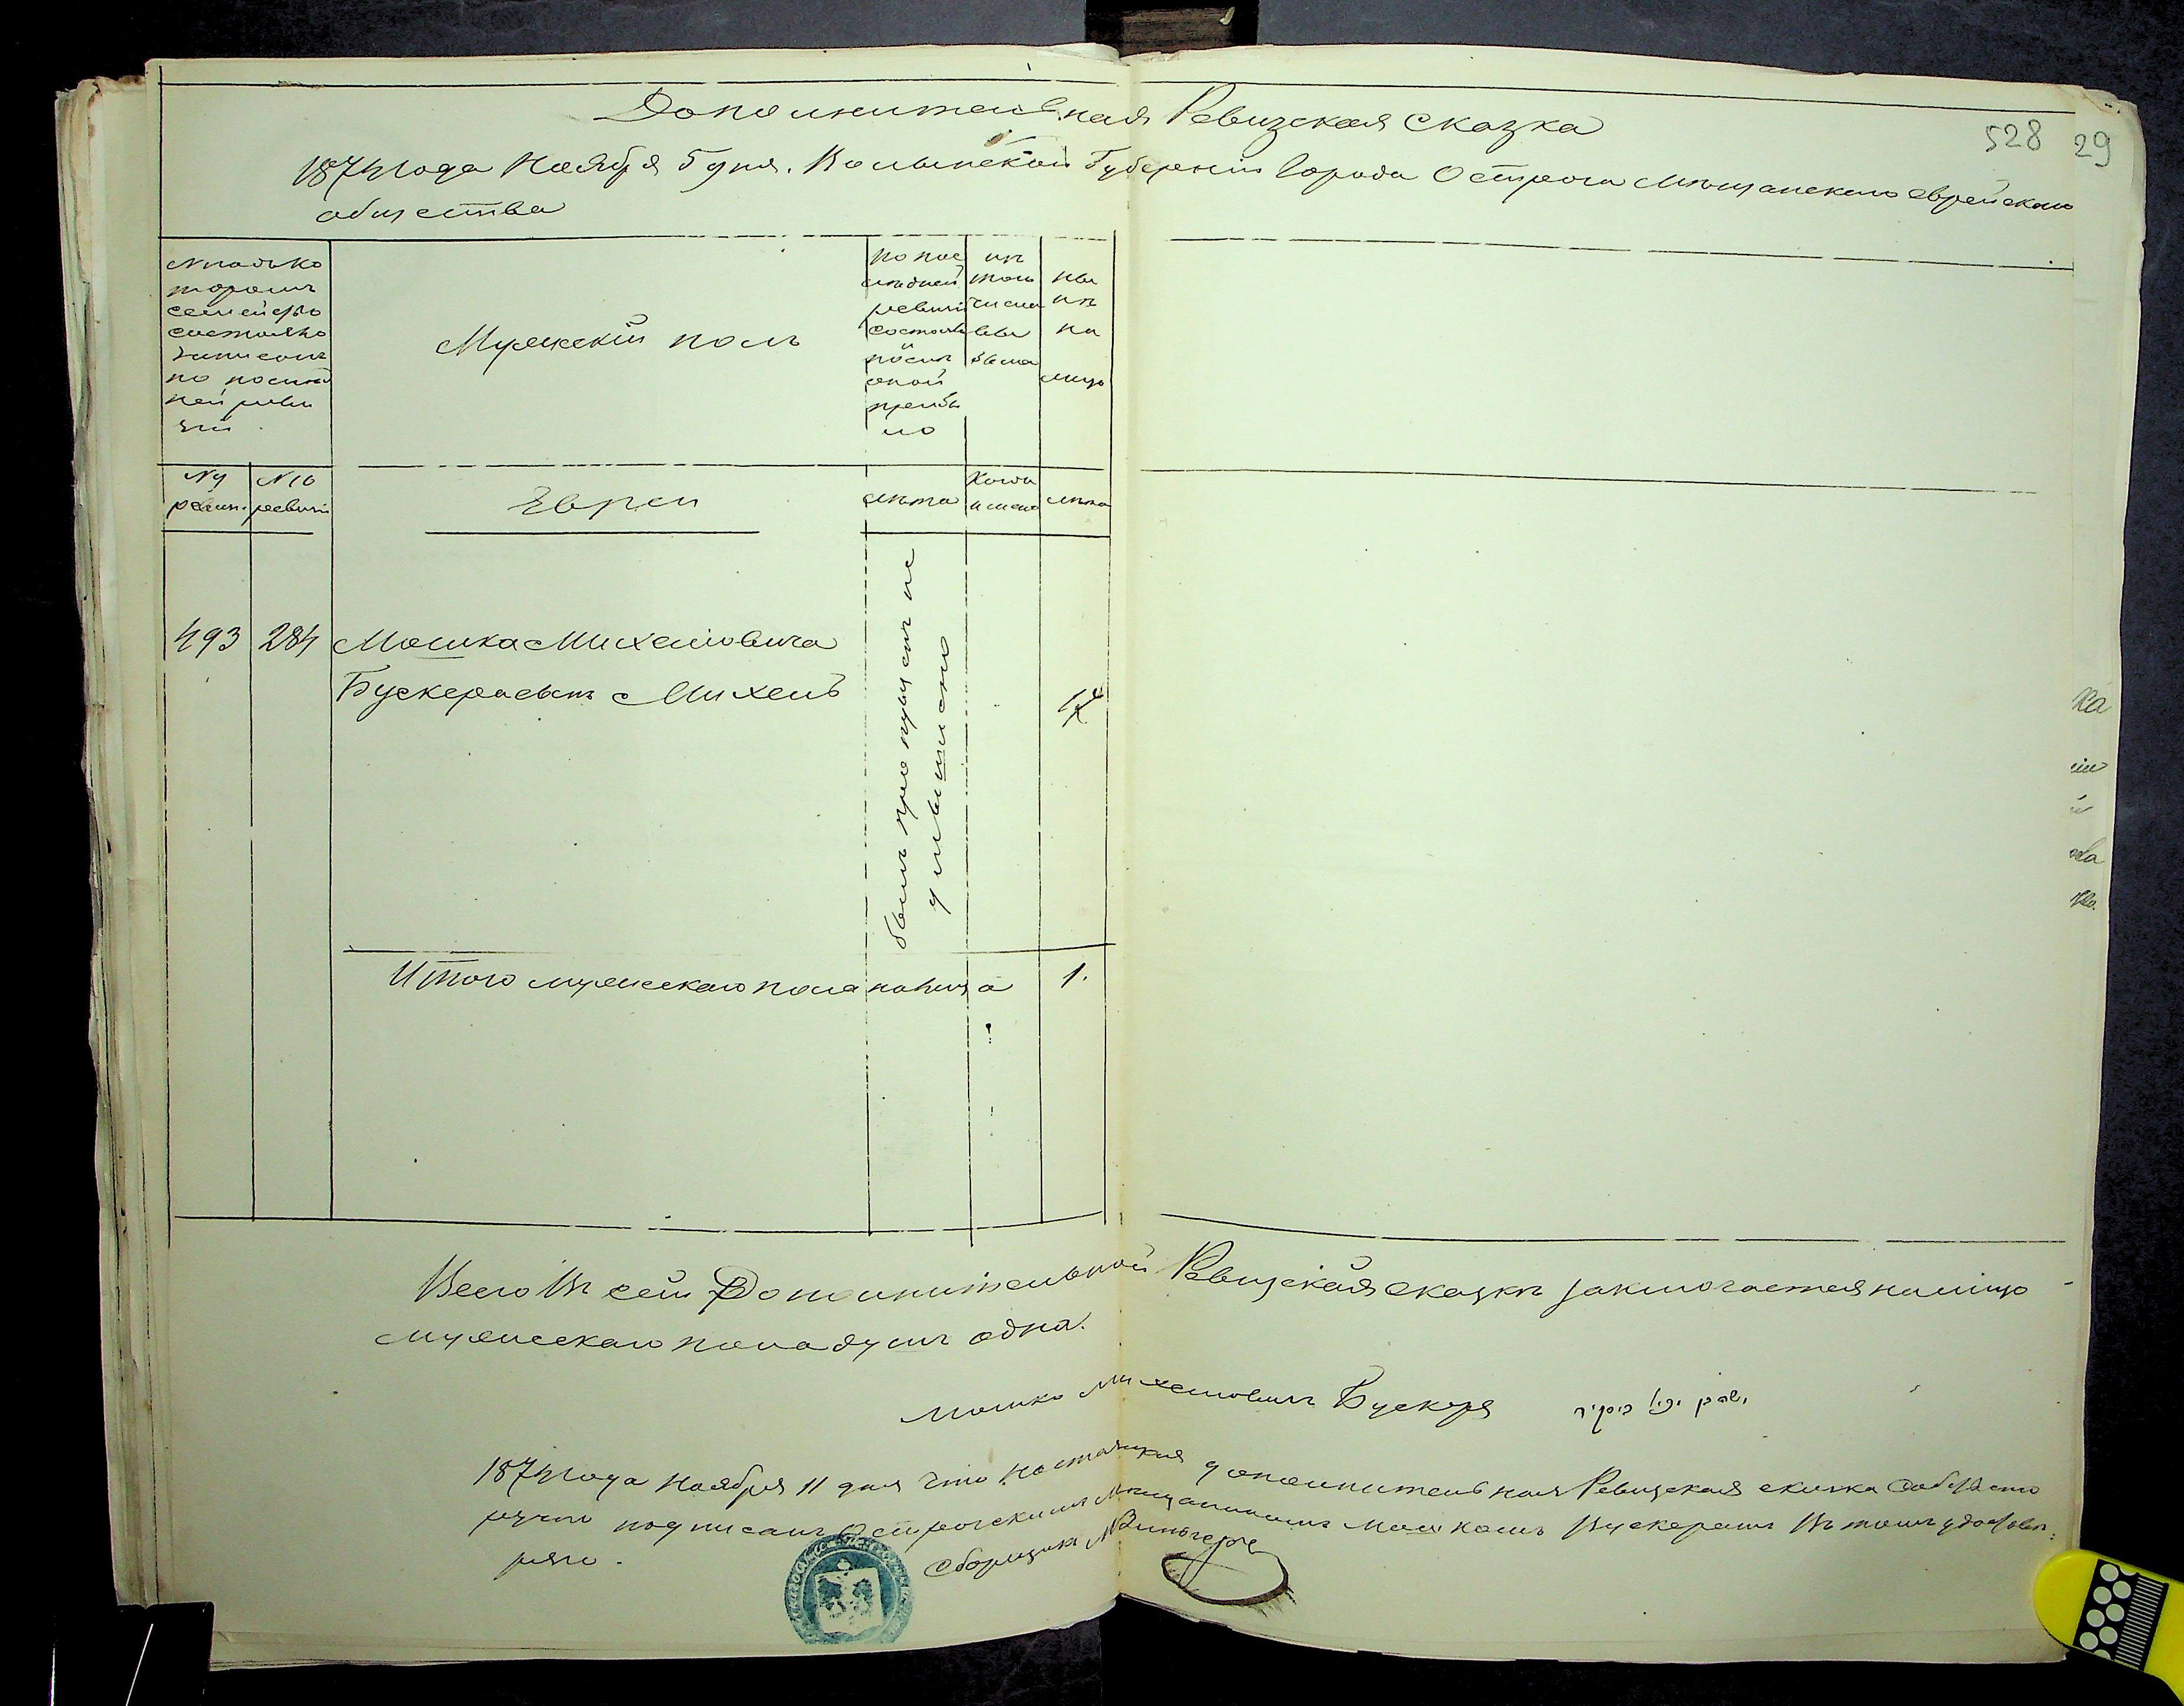 528 29
Дополнительная Ревизская сказка
1874 года Ноября 5 дня. Волынской Губерніи Города Острога Мѣщанскаго еврейскаго
общества
Мужескій полъ
по пос
лѣдней
ревизіи
состоя
ло
изъ
того
числа
вы
было
ны
нѣ
на
лицо
№ 9
ревиз.
№ 10
ревизіи
Евреи
лѣта
Когда
именно
лѣта
493 284 Мошка Михелевича
Бускера сынъ Михель
былъ пропущенъ не
умышленно
Итого мужескаго пола на лицо 1.
Всего въ сей Дополнительной Ревизской сказкѣ заключается налицо
мужескаго пола душъ одна.
Мошко Михелевичъ Бускеръ
1874 года Ноября 11 дня что настоящая дополнительная Ревизская сказка собственно
ручно подписана Острогскимъ Мѣщаниномъ Мошкомъ Бускеромъ Въ томъ удостовѣ:
ряю.
Сборщикъ